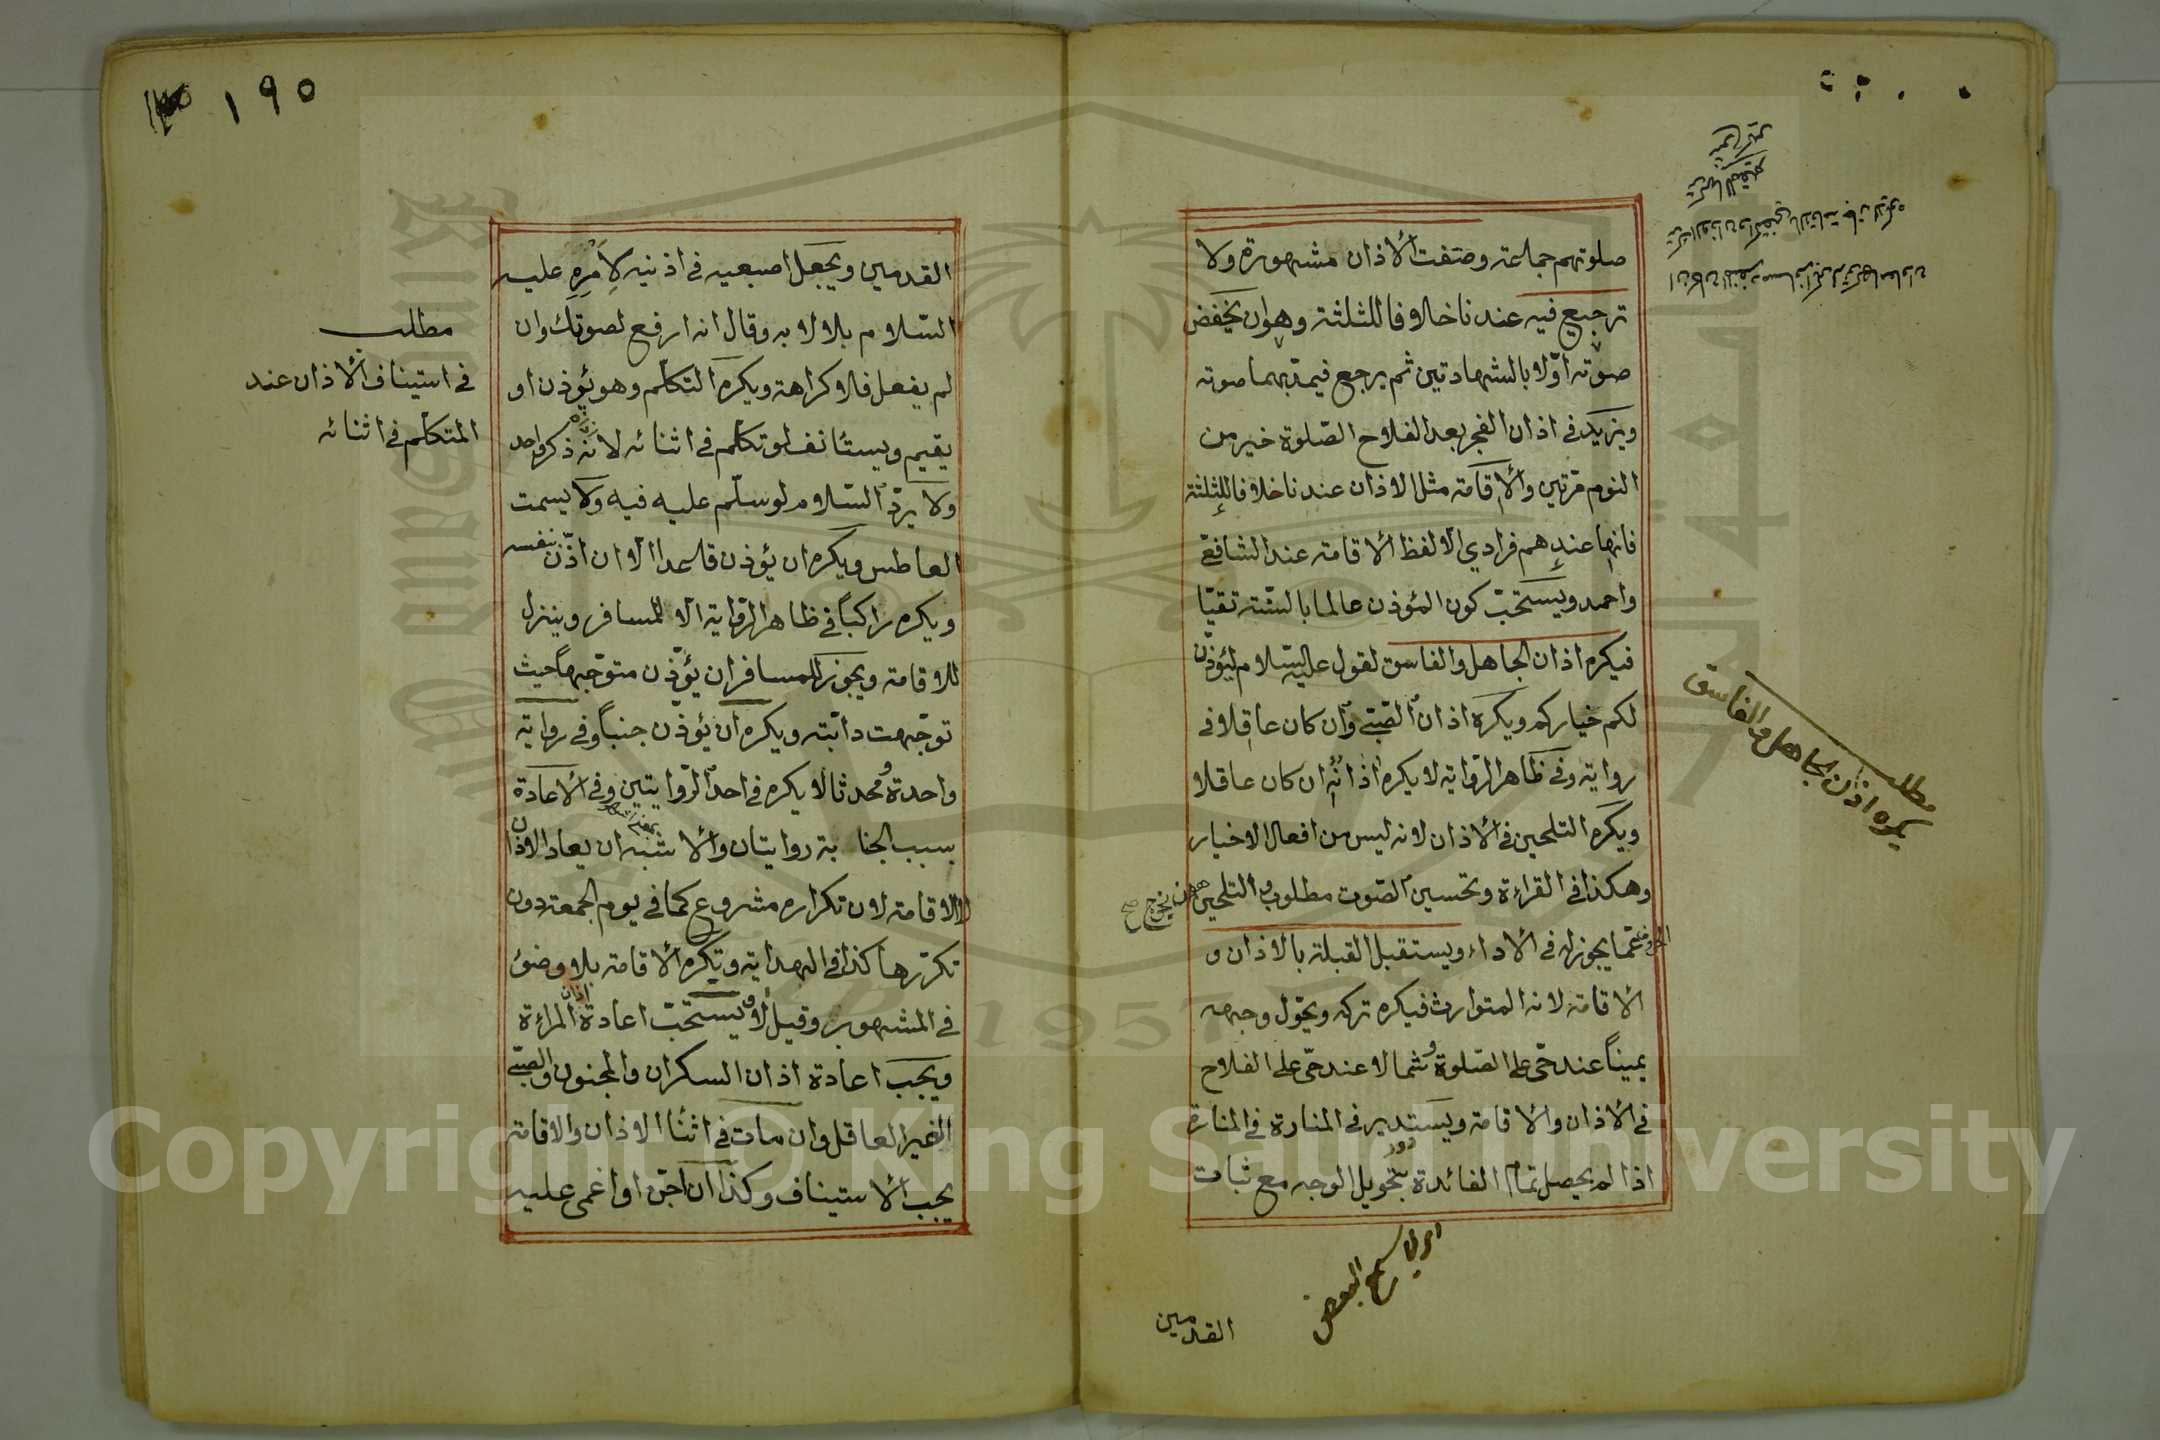 صلوتهم جماعة وصفت الأذان مشهورة ولا
ترجيع فيه عندنا خلافا للثلثة وهو ان يخفض
صوته اوّلا بالشهادتين ثم يرجع فيمدّ بهما صوته
ويزيد في اذان الفجر بعد الفلاح الصّلوة خير من
النوم مرّتين والأقامة مثل الاذان عندنا خلافا للثلثة
فانها عندهم فرادي الّا لفظ الأقامة عند الشافعّ
واحمد ويستحبّ كون المؤذن عالما بالسّنة تقيّا
فيكره اذان الجاهل والفاسق لقول عليه السّلام ليؤذّن
لكم خياركم ويكره اذان الصّبّي وان كان عاقلا في
رواية وفي ظاهر الرّواية لا يكره اذانه ان كان عاقلا
ويكره التلحين في الأذان لانه ليس من افعال الاخيار
وهكذا في القراءة وتحسين الصّوت مطلوب والتلحين هو ان يخرج صح
الحرف عمّا يجوز له في الأداء ويستقبل القبلة بالاذان و
الأقامة لانه المتوارث فيكره تركه ويحوّل وجهه
يميناً عند حّي على الصّلوة وشمالا عند حّي على الفلاح
في الأذان والأقامة ويستدير في المنارة في المنارة
اذا لم يحصل تمام الفائدة بتحويل الوجه مع ثبات
القدمين
مطلب
يكره اذان الجاهل والفاسق
١٩٥
القدمين ويجعل اصبعيه في اذنيه لأمره عليه
السّلام بلالا به وقال انه ارفع لصوتك وان
لم يفعل فلا كراهة ويكره التكلّم وهو يؤذن او
يقيم ويستانف لو تكلّم في اثنائه لانه ذكر واحد
ولا يردّ السّلام لو سلّم عليه فيه ولا يسمت
العاطس ويكره ان يؤذن قاعدا الّا ان اذّن بنفسه
ويكره راكباً في ظاهر الرّواية الّا للمسافر وينزل
للاقامة ويجوز للمسافر ان يؤذّن متوّجهاً حيث
توجّهت دابّته ويكره ان يؤذّن جنباً وفي رواية
واحدة ومحدثا لا يكره في احد الرّوايتين وفي الأعادة
بسبب الجنابة روايتان والأشبه ان يعاد الاذان
لا الاقامة لان تكراره مشروع كما في يوم الجمعة دون
تكرّرها كذا في الهداية وتكره الأقامة بلا وضئ
في المشهور وقيل لا ويستحبّ اعادة اذان المراءة
ويجب اعادة اذان السكران والمجنون والصبّي
الغير العاقل وان مات في اثنا الاذان والاقامة
يجب الأستيناف وكذا ان جّن او اغمى عليه
مطلب
في استيناف الأذان عند
المتكلّم في اثنائه
Copyright © King Saud University
1957